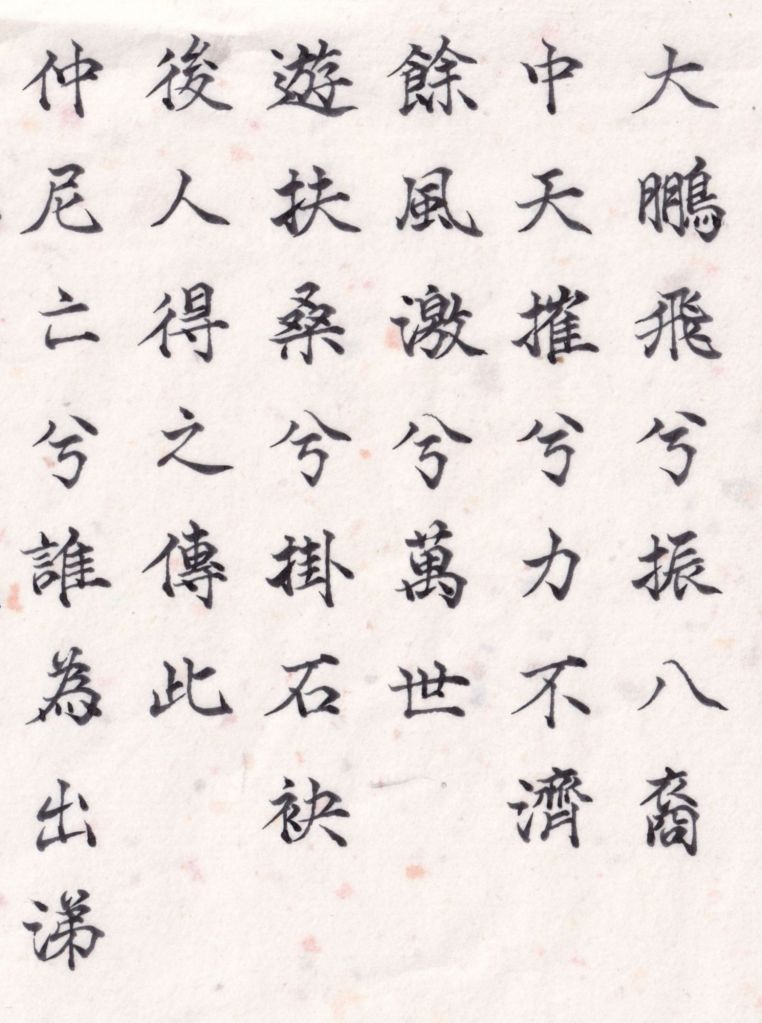 大鵬飛兮振八裔
中天摧兮力不濟
餘風激兮萬世
遊扶桑兮掛石袂
後人得之傳此
仲尼亡兮誰為出涕